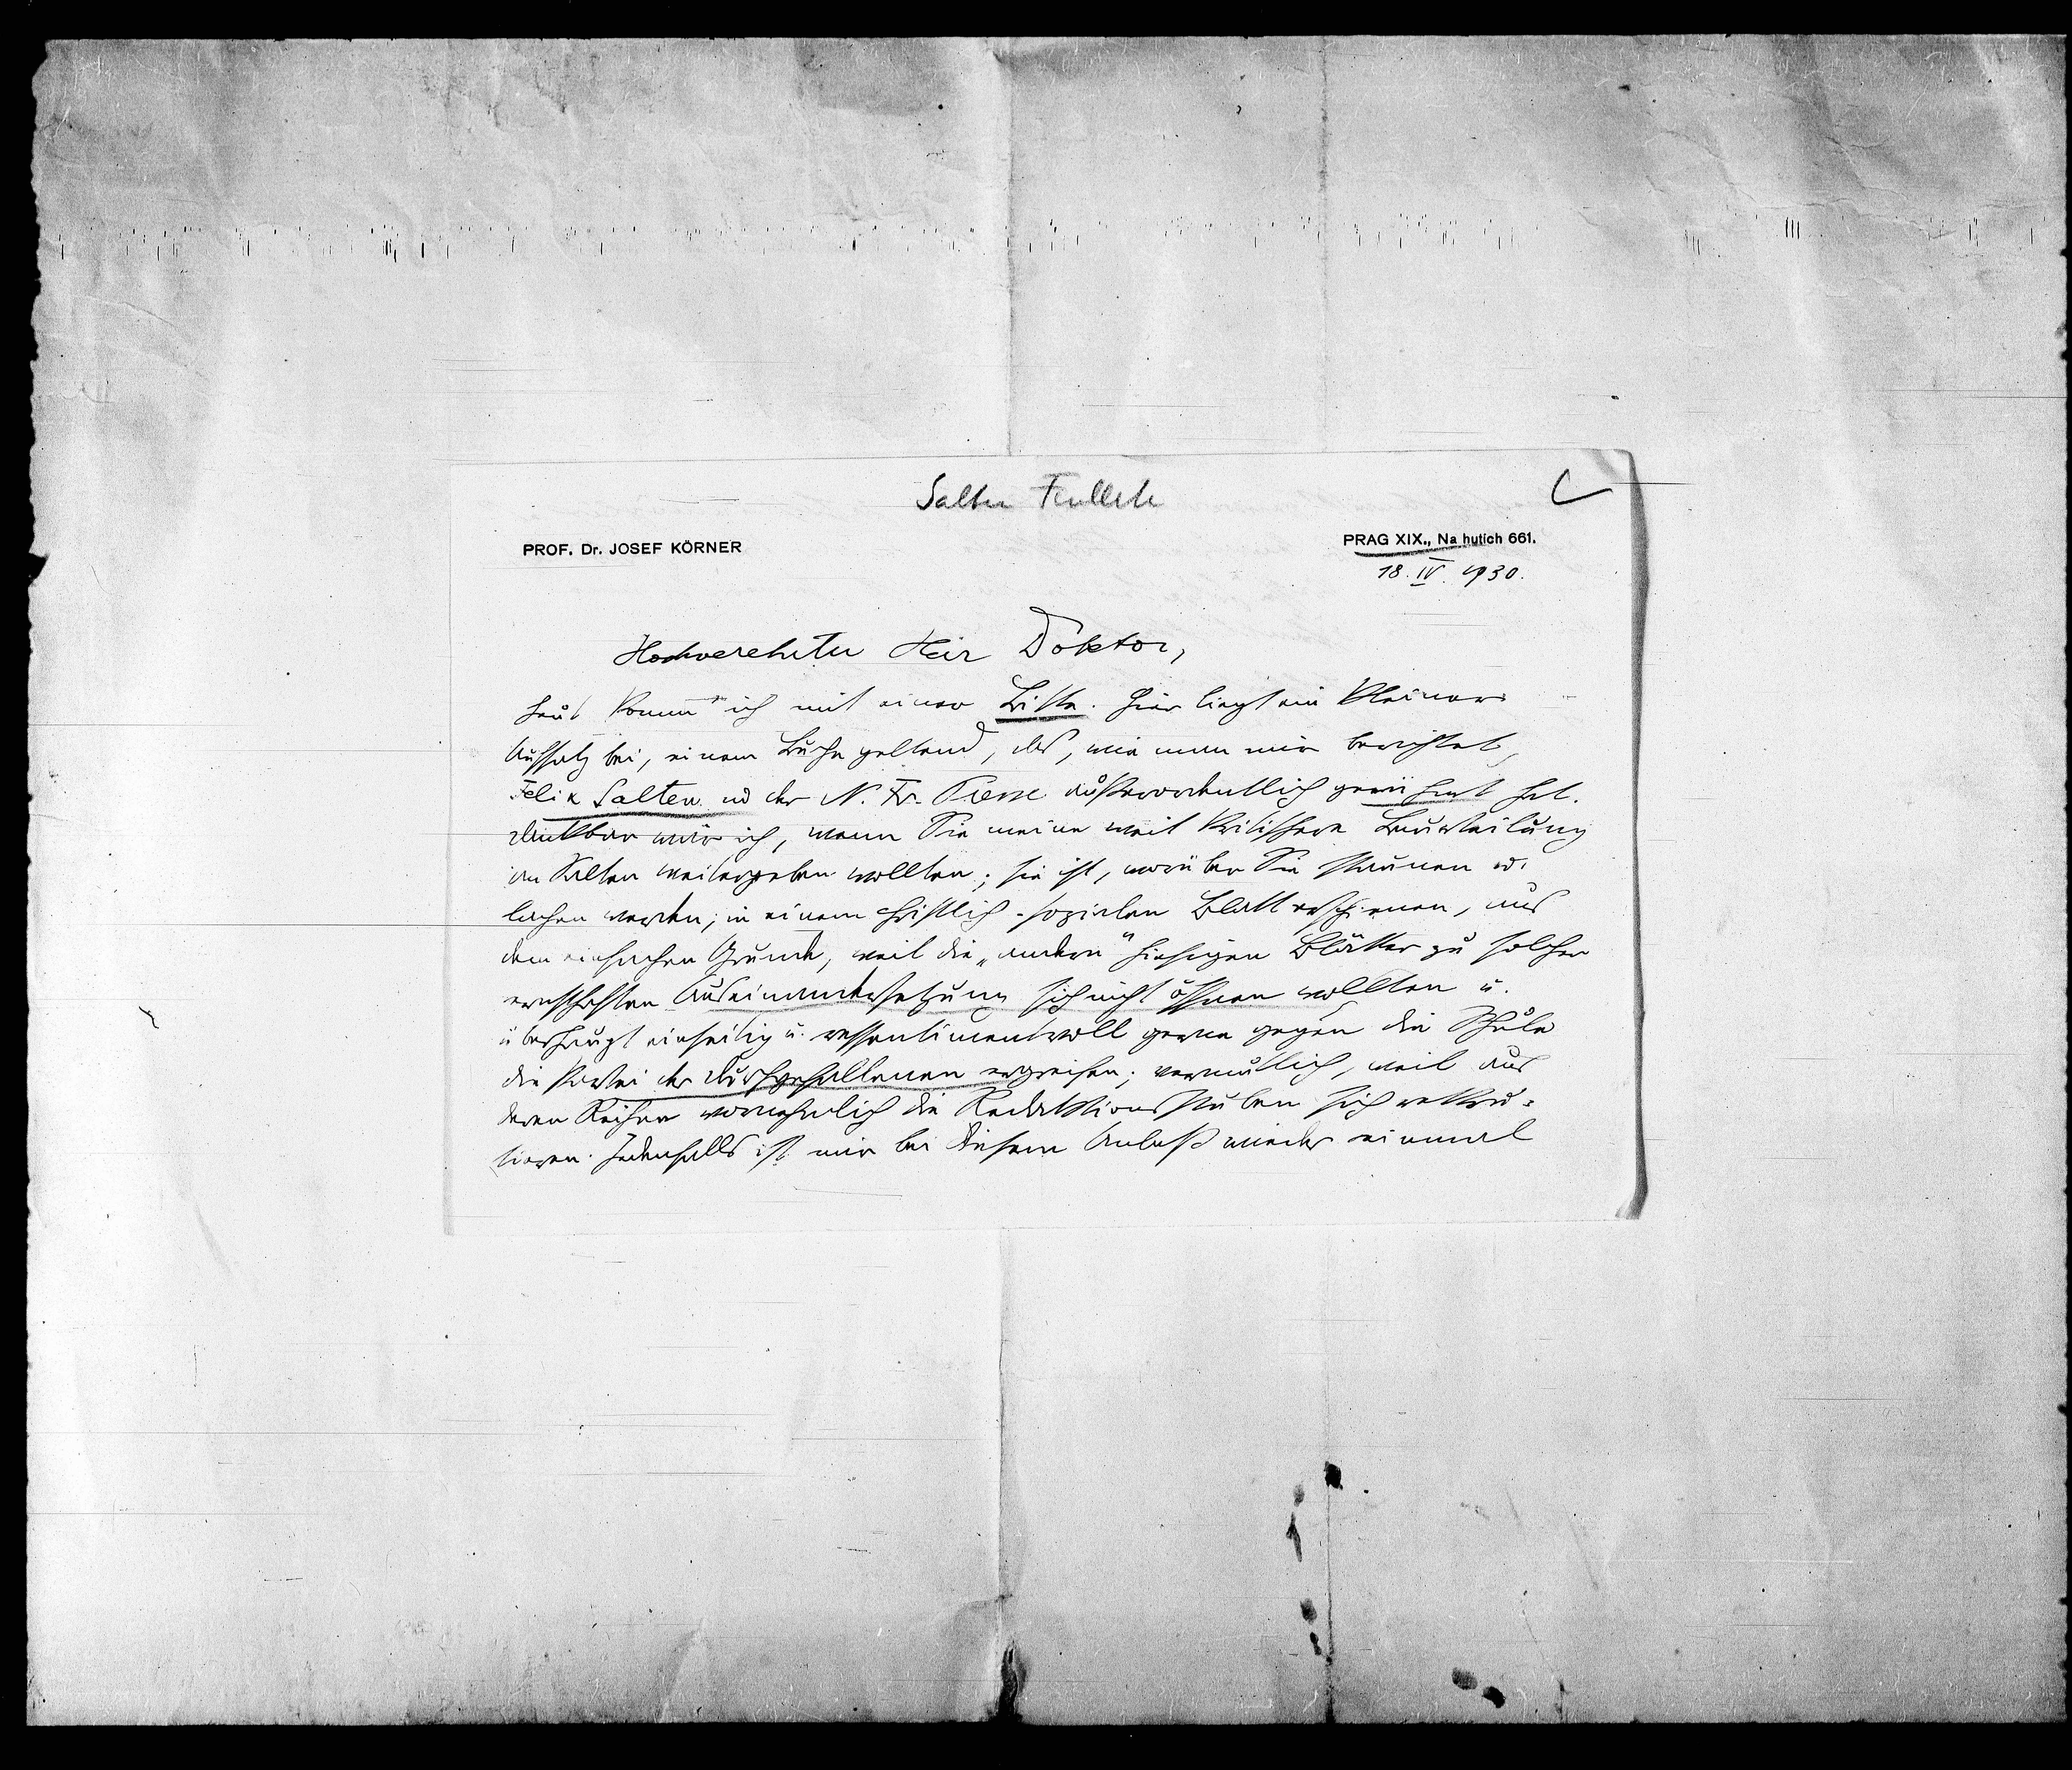 Salten Feuillet
PROF. Dr. JOSEF KÖRNER
PRAG XIX., Na hutich 661.
18. IV. 1930.
Hochverehrter Herr Doktor,
heut komm' ich mit einer Bitte. Hier liegt ein kleiner
Aufsatz bei, einem Buche geltend, das, wie man mir berichtet,
Felix Salten in der N. Fr. Presse außerordentlich gerühmt hat.
Dankbar wär ich, wenn Sie meine weit kritischere Beurteilung
an Salten weitergeben wollten; sie ist, worüber Sie staunen od.
lachen werden, in einem christlich-sozialen Blatt erschienen, aus
dem einfachen Grunde, weil die „andern“ hiesigen Blätter zu solcher
ernsthaften Auseinandersetzung sich nicht öffnen wollten u.
überhaupt einseitig u. ressentimentvoll gerne gegen die Schule
die Partei der Durchgefallenen ergreifen; vermutlich, weil aus
deren Reihen vornehmlich die Redaktionsstuben sich rekru-
tieren. Jedenfalls ist mir bei diesem Anlaß wieder einmal